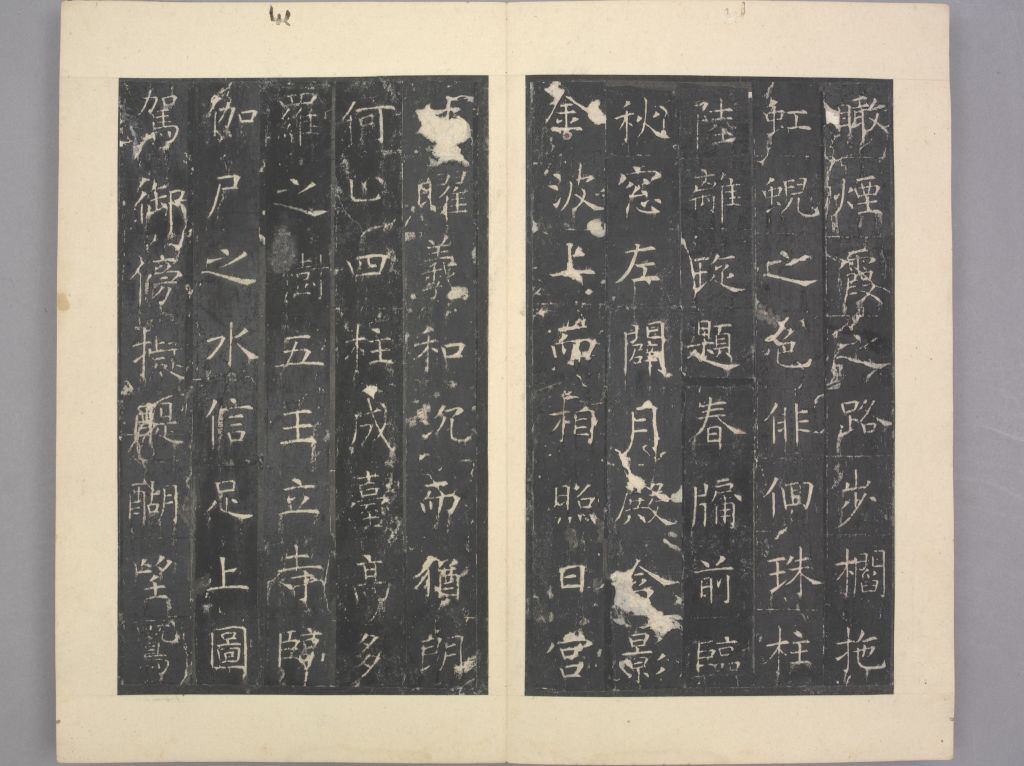 瞰煙霞之路步櫩拖
虹蜺之色俳佪珠柱
陸離琁題春牖前臨
秋窓左闢月殿含影
金波上而相照日宮
曜義和沉而猶朗
何止四柱成臺高多
羅之樹五王立寺隣
伽尸之水信足上圖
駕御傍擬醍醐望鷲